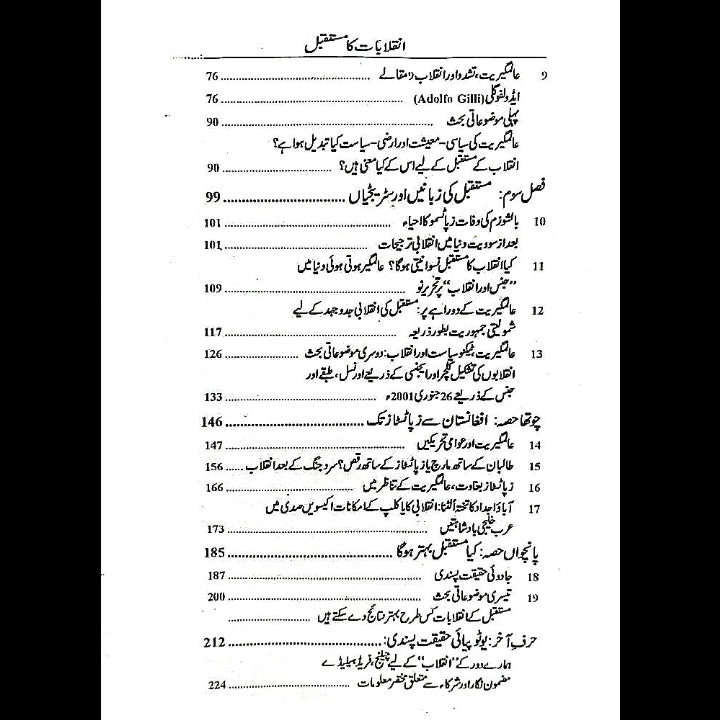 انقلابات کا مستقبل
9 عالمگیریت، تشدد اور انقلاب 9 مقالے ........ 76
ایڈولفو گلی (Adolfo Gilli) ........ 76
پہلی موضوعاتی بحث ........ 90
عالمگیریت کی سیاسی - معیشت اور ارضی - سیاست کیا تبدیل ہوا ہے؟
انقلاب کے مستقبل کے لیے اس کے کیا معنی ہیں؟ ........ 90
فصل سوم: مستقبل کی زبانیں اور سٹریٹجیاں ........ 99
10 بالشوزم کی وفات زپاٹسمو کا احیاء ........ 101
بعد از سوویت دنیا میں انقلابی ترجیحات ........ 101
11 کیا انقلاب کا مستقبل نسوانیتی ہوگا؟ عالمگیر ہوتی ہوئی دنیا میں
"جنس اور انقلاب" پر تحریر نو ........ 109
12 عالمگیریت کے دوراہے پر: مستقبل کی انقلابی جدوجہد کے لیے
شمولیتی جمہوریت بطور ذریعہ ........ 117
13 عالمگیریت، ٹیکنو سیاست اور انقلاب: دوسری موضوعاتی بحث ........ 126
انقلابوں کی تشکیل کلچر اور ایجنسی کے ذریعے اور نسل، طبقے اور
جنس کے ذریعے 26 جنوری 2001ء ........ 133
چوتھا حصہ: افغانستان سے زپاٹسٹاز تک ........ 146
14 عالمگیریت اور عوامی تحریکیں ........ 147
15 طالبان کے ساتھ مارچ یا زپاٹسٹاز کے ساتھ رقص؟ سرد جنگ کے بعد انقلاب ...... 156
16 زپاٹسٹاز بغاوت، عالمگیریت کے تناظر میں ........ 166
17 آباؤ اجداد کا تختہ اُلٹنا: انقلابی کایا کلپ کے امکانات اکیسویں صدی میں
عرب خلیجی بادشاہتیں ........ 173
پانچواں حصہ: کیا مستقبل بہتر ہوگا ........ 185
18 جادوئی حقیقت پسندی ........ 187
19 تیسری موضوعاتی بحث ........ 200
مستقبل کے انقلابات کس طرح بہتر نتائج دے سکتے ہیں ........
حرف آخر: یوٹوپیائی حقیقت پسندی: ........ 212
ہمارے دور کے "انقلاب" کے لیے چیلنج، فریڈ ہیلیڈے
مضمون نگار اور شرکاء سے متعلق مختصر معلومات ........ 224